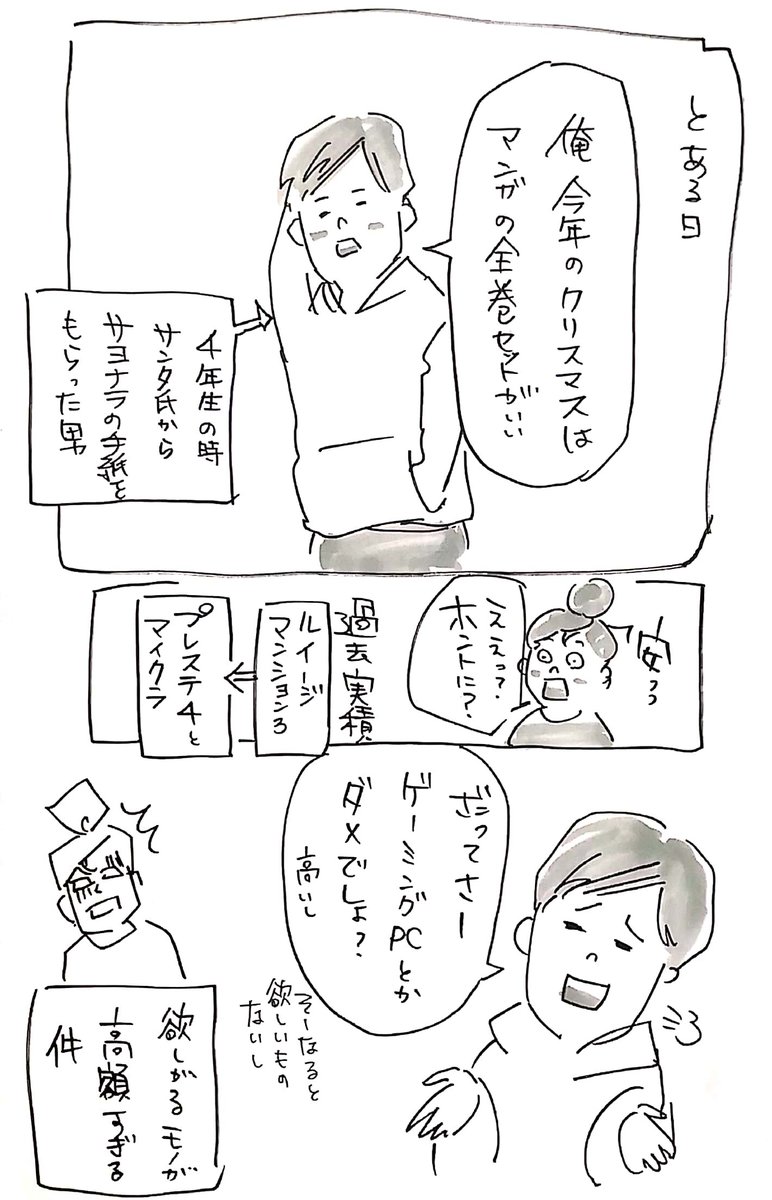 とある日
俺 今年のクリスマスは
マンガの全巻セットがいい
4年生の時
サンタ氏から
サヨナラの手紙を
もらった男
安っっ
ええっ?
ホントに?
過去実積
ルイージ
マンション3
プレステ4と
マイクラ
だってさー
ゲーミングPCとか
ダメでしょ?
高いし
そーなると
欲しいもの
ないし
欲しがるモノが
高額すぎる
件